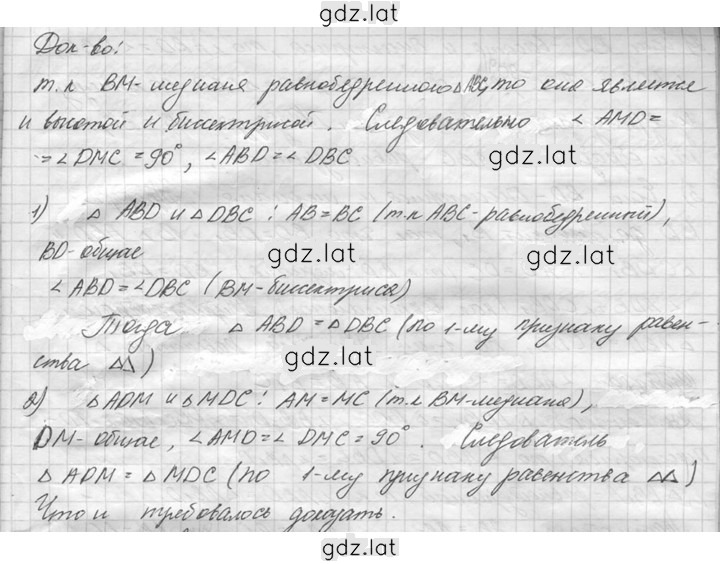 gdz.lat
Док-во:
т.к ВМ-медиана равнобедренного △ABC, то она является
и высотой и биссектрисой. Следовательно ∠AMD=
gdz.lat
=∠DMC=90°, ∠ABD=∠DBC
1) △ ABD и △DBC: AB=BC (т.к ABC-равнобедренный),
BD-общае
gdz.lat
∠ABD=∠DBC (ВМ-биссектриса)
Тогда △ ABD=△DBC (по 1-му признаку равен-
ства △△)
gdz.lat
2) △ADM и △MDC: AM=MC (т.к ВМ-медиана),
DM-общае, ∠AMD=∠DMC=90°. Следователь
gdz.lat
△ADM=△MDC (по 1-му признаку равенства △△)
Что и требовалось доказать.
gdz.lat